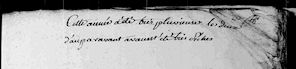 Cette année a été très pluvieuse, les deux étés
d'auparavant avaient été très sèches